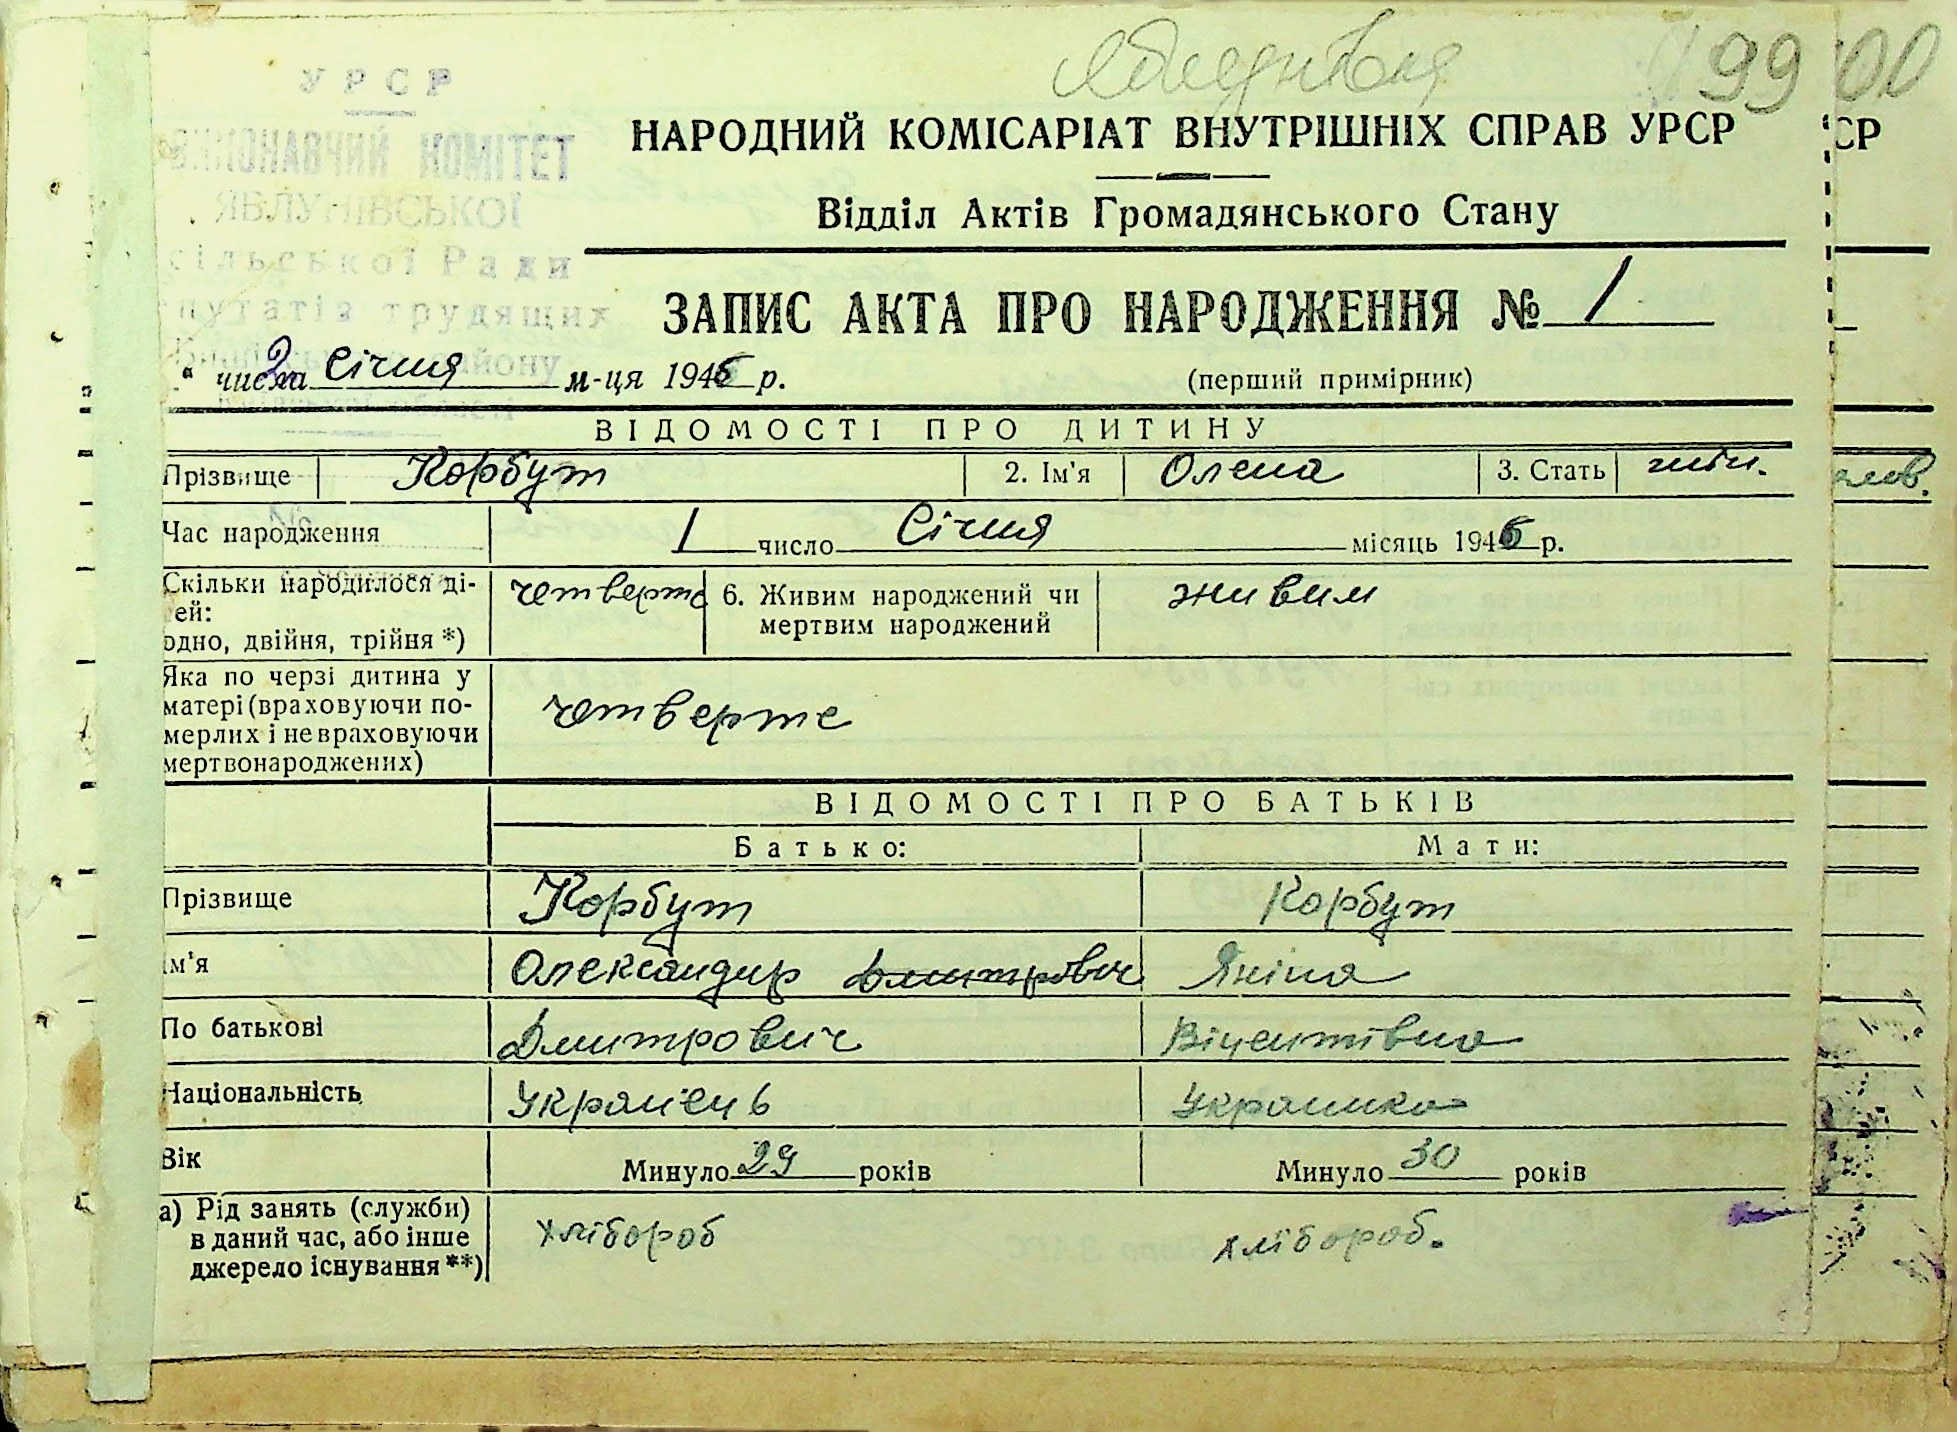 Яблунівка
199
00
УРСР
ВИКОНАВЧИЙ КОМІТЕТ
ЯБЛУНІВСЬКОЇ
сільської Ради
депутатів трудящих
району
НАРОДНИЙ КОМІСАРІАТ ВНУТРІШНІХ СПРАВ УРСР
СР
Відділ Актів Громадянського Стану
ЗАПИС АКТА ПРО НАРОДЖЕННЯ № 1
“ 2 числа січня м-ця 1946 р.
(перший примірник)
ВІДОМОСТІ ПРО ДИТИНУ
Прізвище Корбут 2. Ім'я Олена 3. Стать жін.
Час народження 1 число Січня місяць 1946 р.
Скільки народилося ді-
тей:
одно, двійня, трійня *)
четверте
6. Живим народжений чи
мертвим народжений
живим
Яка по черзі дитина у
матері (враховуючи по-
мерлих і не враховуючи
мертвонароджених)
четверте
ВІДОМОСТІ ПРО БАТЬКІВ
Батько: Мати:
Прізвище Корбут Корбут
Ім'я Олександр Дмитрович Яніна
По батькові Дмитрович Віцентівна
Національність Украпєць Українка
Вік Минуло 29 років Минуло 30 років
а) Рід занять (служби)
в даний час, або інше
джерело існування **)
хлібороб хлібороб.